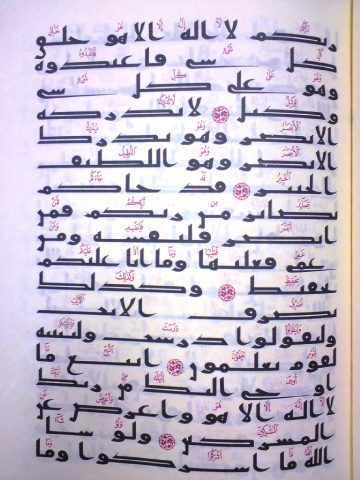 ربكم لا اله الا هو خلق
كل شى فاعبدوه
وهو على كل شى
وكيل لا تدركه
الابصر وهو يدرك
الابصر وهو اللطيف
الخبير قد جاكم
بصاير من ربكم فمن
ابصر فلنفسه ومن
عمى فعليها وما انا عليكم
بحفيظ وكذلك
نصرف الايت
وليقولوا درست ولنبينه
لقوم يعلمون اتبع ما
اوحى اليك من ربك
لا اله الا هو واعرض عن
المشركين ولو شا
الله ما اشركوا وما